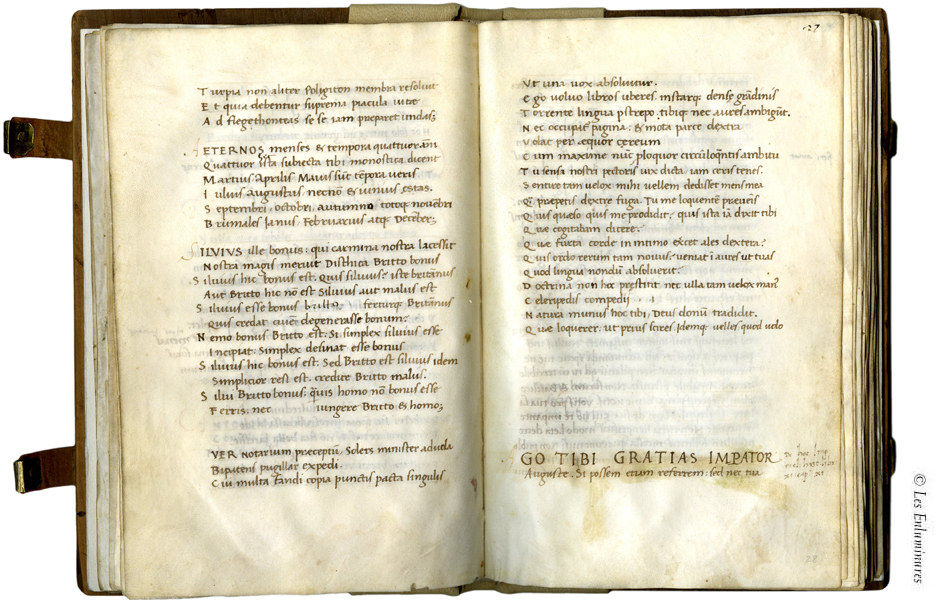 Turpia non aliter Poligiton membra resoluit
Et quia debentur suprema piacula uitae
Ad flegethonteas sese iam preparet undas;
AETERNOS menses & tempora quattuor anni
Quattuor ista subiecta tibi monostica dicent
Martius Aprilis Maius sunt tempora ueris
Iulius augustus necnō & iunius estas.
Septembri. octobri. autumno totoq; nouēbri
Brumales Ianus Februarius atq; December;
ILVIVS ille bonus: qui carmina nostra lacessit
Nostra magis meruit Disthica Britto bonus
Siluius hic bonus est. Quis siluius? iste britanus
Aut Britto hic nō est Siluius aut malus est
Siluius esse bonus britto ferturq; Britānus
Quis credat ciuē degenerasse bonum?
Nemo bonus Britto est. Si simplex siluius esse
Incipiat: Simplex desinat esse bonus
Siluius hic bonus est. Sed Britto est siluius idem
Simplicior res est. credite Britto malus.
Silui Britto bonus: quis homo nō bonus esse
Fertis: nec iungere Britto & homo;
VER Notarium praeceptū. Solers minister aduola
Bipatens pugillar expedi.
Cui multa fandi copia punctis pacta singulis
27
Vt una uox absoluitur.
Ego uoluo libros uberes. instarq; dense grādinis
Torrente lingua pstrepo. tibiq; nec aures ambigūt.
Nec occupat pagina. & mota parce dextra
Volat per equor cereum
Cum maxime nūc ploquor circūloq̄ntis ambitu
Tu sensa nostri pectoris uix dicta iam ceris tenes.
Sentire tam uelox mihi uellem dedisset mens mea
Q̄ praepetis dextre fuga. Tu me loquentē preuenis
Quis queso quis me prodidit. quis ista iā dixit tibi
Que cogitabam dicere?
Que furta corde in intimo exercet ales dextera?
Quis ordo rerum tam nouus? ueniat i aures ut tuas
Quod lingua nondū absoluerit?
Doctrina non hoc prestitit nec ulla tam uelox man⁹
Celeripedis compedij
Natura munus hoc tibi. Deus donū tradidit.
Que loquerer. ut prius scires. Idemq; uelles quod uolo
GO TIBI GRATIAS IMPATOR
Auguste. Si possem etiam referrem. sed nec tua
© Les Enluminures